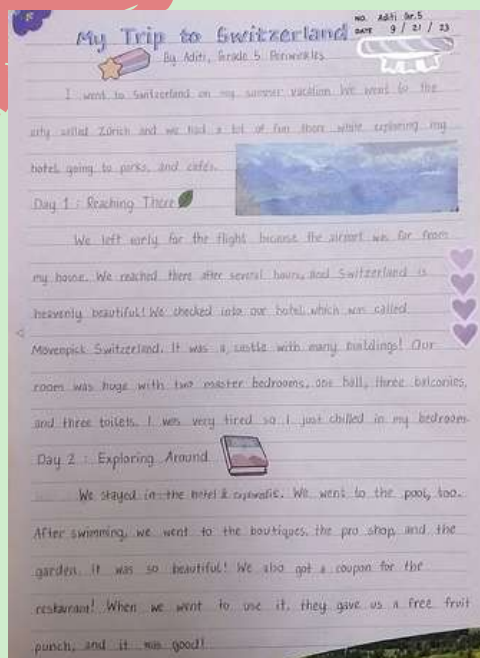 My Trip to Switzerland
NO. Aditi Gr.5
DATE 9 / 21 / 23
By Aditi, Grade 5 Periwinkles
I went to Switzerland on my summer vacation. We went to the
city called Zürich and we had a lot of fun there while exploring my
hotel, going to parks, and cafés.
Day 1 : Reaching There
We left early for the flight because the airport was far from
my house. We reached there after several hours, and Switzerland is
heavenly beautiful! We checked into our hotel which was called
Movenpick Switzerland. It was a castle with many buildings! Our
room was huge with two master bedrooms, one hall, three balconies,
and three toilets. I was very tired so I just chilled in my bedroom.
Day 2 : Exploring Around
We stayed in the hotel &. We went to the pool, too.
After swimming, we went to the boutiques, the pro shop, and the
garden. It was so beautiful! We also got a coupon for the
restaurant! When we went to use it, they gave us a free fruit
punch, and it was good!